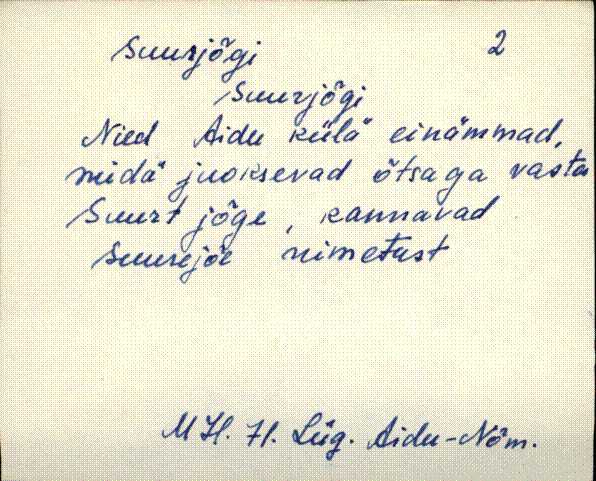 Suurjõgi 2
Suurjõgi
Nied Aidu külä einämmad,
midä juoksevad õtsaga vasta
Suurt jõge, kannavad
Suurejõe nimetust
MH. 71. Lüg. Aidu-Nõm.